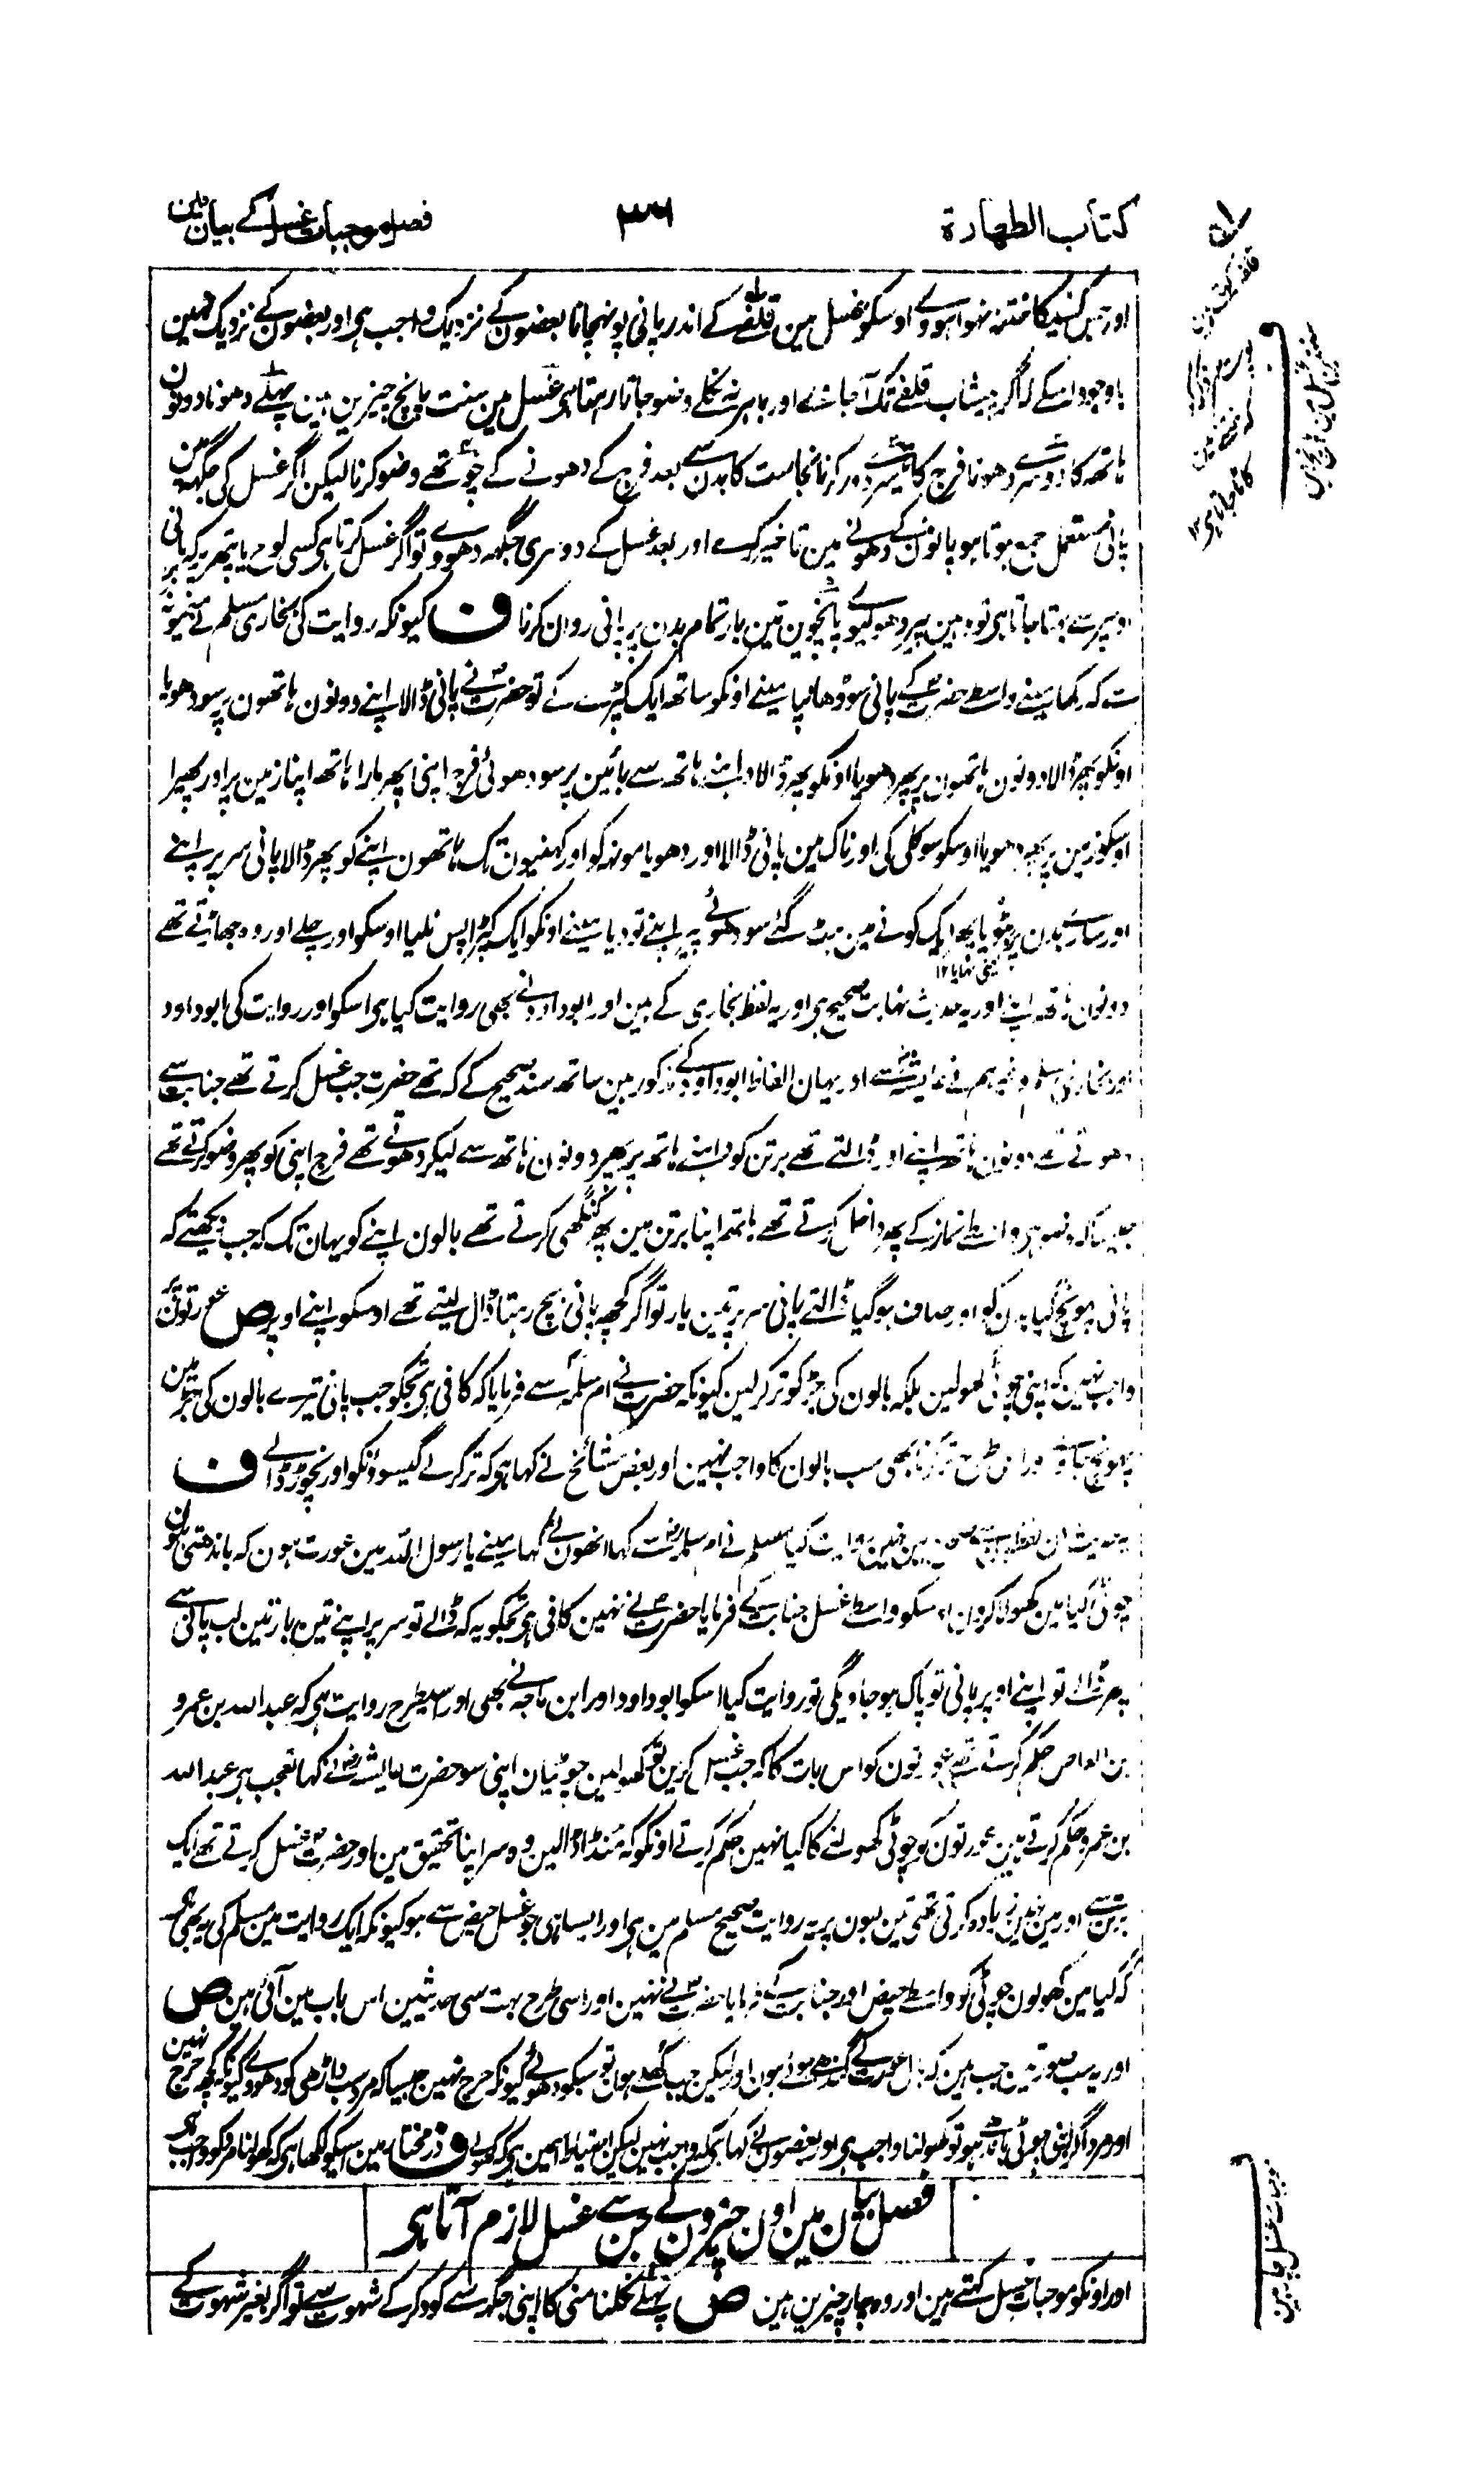 کتاب الطهارة
۳۶
فصل موجبات غسل کے بیان مین
اور جس کسیکا ختنہ نہوا ہووے اوسکو غسل مین قلفے کے اندر پانی پونہچانا بعضون کے نزدیک واجب ہی اور بعضون کے نزدیک نہین
باوجود اسکے اگر پیشاب قلفے تک آجاے اور باہر نہ نکلے وضو جاتا رہتا ہی غسل مین سنت پانچ چیزین ہین پہلے دھونا دونون
ہاتھ کا دوسرے دھونا فرج کا تیسرے دور کرنا نجاست کا بدن سے بعد فرج کے دھونے کے چوتھے وضو کرنا لیکن اگر غسل کی جگہہ مین
پانی مستعمل جمع ہوتا ہو پانون کے دھونے مین تاخیر کرے اور بعد غسل کے دوسری جگہہ دھووے تو اگر غسل کرتا ہی کسی لوح یا پتھر پر کہ پانی
اوسپر سے بہتا جاتا ہی تو وہین پیر دھو لیوے پانچوین تین بار تمام بدن پر پانی روان کرنا ف کیونکہ روایت کی بخاری مسلم نے میمونہ
سے کہ رکھا مینے واسطے حضرت کے پانی سو ڈھانپا مینے اونکو ساتھ ایک کپڑے کے تو حضرت نے پانی ڈالا اپنے دونون ہاتھون پر سو دھویا
اونکو پھر ڈالا دونون ہاتھون پر پھر دھویا اونکو پھر ڈالا داہنے ہاتھ سے بائین پر سو دھوئی فرج اپنی پھر مارا ہاتھ اپنا زمین پر اور پھیرا
اوسکو زمین پر پھر دھویا اوسکو سو کلی کی اور ناک مین پانی ڈالا اور دھویا مونہہ کو اور کہنیون تک ہاتھون اپنے کو پھر ڈالا پانی سر پر اپنے
اور سارے بدن پر پھر ایک کونے مین ہٹ گئے سو دھوئے پیر اپنے تو دیا مینے اونکو ایک کپڑا پس نلیا اوسکو اور چلے اور وہ جھاڑتے تھے
یعنی نہایا ۱۲
دونون ہاتھ اپنے اور یہ حدیث نہایت صحیح ہی اور یہ لفظ بخاری کے ہین اور ابوداود نے بھی روایت کیا ہی اسکو اور روایت کی ابوداود
اور بخاری مسلم وغیرہم نے عایشہ سے اور یہان الفاظ ابوداود کے مذکور ہین ساتھ سند صحیح کے کہ تھے حضرت جب غسل کرتے تھے جنابت سے
دھوتے تھے دونون ہاتھ اپنے اور ڈالتے تھے برتن کو اپنے ہاتھ پر پھر دونون ہاتھ سے لیکر دھوتے تھے فرج اپنی کو پھر وضو کرتے تھے
جیسا کہ وضو ہی واسطے نماز کے پھر داخل کرتے تھے ہاتھ اپنا برتن مین پھر کنگھی کرتے تھے بالون اپنے کو یہان تک کہ جب دیکھتے کہ
پانی پہونچ گیا بدن کو اور صاف ہوگیا ڈالتے پانی سر پر تین بار تو اگر کچھ پانی بچ رہتا ڈال لیتے تھے اوسکو اپنے اوپر ص عورتون کو
واجب نہین کہ اپنی چوٹی کھولین بلکہ بالون کی جڑ کو تر کرلین کیونکہ حضرت نے ام سلمہ سے فرمایا کہ کافی ہی تجکو جب پانی تیرے بالون کی جڑ مین
پہونچ جاوے اور اس طرح تر کرنا بھی سب بالون کا واجب نہین اور بعض مشائخ نے کہا ہو کہ تر کرلے گیسوونکو اور نچوڑ ڈالے ف
یہ حدیث ان لفظون سے صحیح مین نہین روایت کیا مسلم نے ام سلمہ سے کہا انھون نے کہا مینے یا رسول اللہ مین عورت ہون کہ باندھتی ہون
چوٹی کیا مین کھولا کرون اسکو واسطے غسل جنابت کے فرمایا حضرت نے نہین کافی ہی تجکو یہ کہ ڈالے تو سر پر اپنے تین بار تین لب پانی سے
پھر ڈالے تو اپنے اوپر پانی تو پاک ہو جاویگی تو روایت کیا اسکو ابوداود اور ابن ماجہ نے بھی اور اسیطرح روایت ہی کہ عبد اللہ بن عمرو
بن العاص حکم کرتے تھے عورتون کو اس بات کا کہ جب غسل کرین تو کھولین چوٹیان اپنی سو حضرت عایشہ نے کہا تعجب ہی عبد اللہ
بن عمرو حکم کرتے ہین عورتون کو چوٹی کھولنے کا کیا نہین حکم کرتے اونکو کہ منڈا ڈالین وہ سر اپنا تحقیق مین اور حضرت غسل کرتے تھے ایک
برتن سے اور مین نہین زیادہ کرتی تھی تین لبون پر یہ روایت صحیح مسلم مین ہی اور ایسا ہی جو غسل حیض سے ہو کیونکہ ایک روایت مین مسلم کی یہ بھی ہی
کہ کیا مین کھولون چوٹی کو واسطے حیض اور جنابت کے فرمایا حضرت نے نہین اور اسی طرح بہت سی حدیثین اس باب مین آئی ہین ص
اور یہ سب صورتین جب ہین کہ بال عورت کے گندھے ہوئے ہون اور لیکن جب کھلے ہون تو سبکو دھوئے کیونکہ حرج نہین جیسا کہ مرد سب ڈاڑھی کو دھووے کیونکہ کچھ حرج نہین
اور مرد اگر اپنی چوٹی باندھے ہو تو کھولنا واجب ہی اور بعضون نے کہا ہی کہ واجب نہین لیکن احتیاط اسمین ہی کہ کھولے ف درمختار مین اسیکو لکھا ہی کہ کھولنا مرد کو واجب ہی
فصل بیان مین اون چیزون کے جن سے غسل لازم آتا ہی
اور اونکو موجبات غسل کہتے ہین اور وہ چار چیزین ہین ص پہلے نکلنا منی کا اپنی جگہ سے کود کر کے شہوت سے تو اگر بغیر شہوت کے
کاٹا جاتا ہی ۱۲